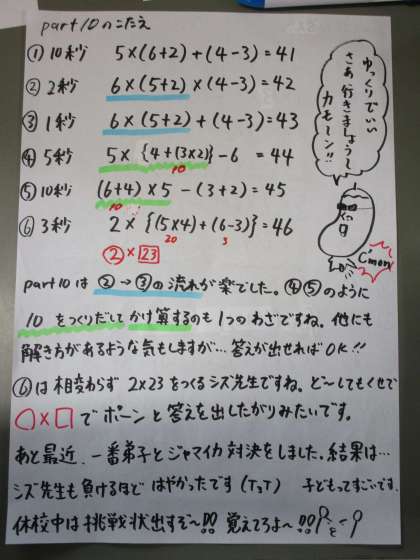 part10のこたえ
① 10秒 5×(6+2)+(4-3)=41
② 2秒 6×(5+2)×(4-3)=42
③ 1秒 6×(5+2)+(4-3)=43
④ 5秒 5×{4+(3×2)}-6=44
10
⑤ 10秒 (6+4)×5-(3+2)=45
10
⑥ 3秒 2×{(5×4)+(6-3)}=46
20 3
②×23
ゆっくりでいい
さあ行きましょう〜
カモ〜ン!!
C'mon
part10は ②→③の流れが楽でした。④⑤のように
10をつくりだしてかけ算するのも1つのわざですね。他にも
解き方があるような気もしますが…答えが出せればOK!!
⑥は相変わらず 2×23をつくるシズ先生ですね。ど〜してもくせで
○×□でポーンと答えを出したがりみたいです。
あと最近、一番弟子とジャマイカ対決をしました。結果は…
シズ先生も負けるほどはやかったです(T3T) 子どもってすごいです。
休校中は挑戦状出すぞ〜!! 覚えてろよ〜!!